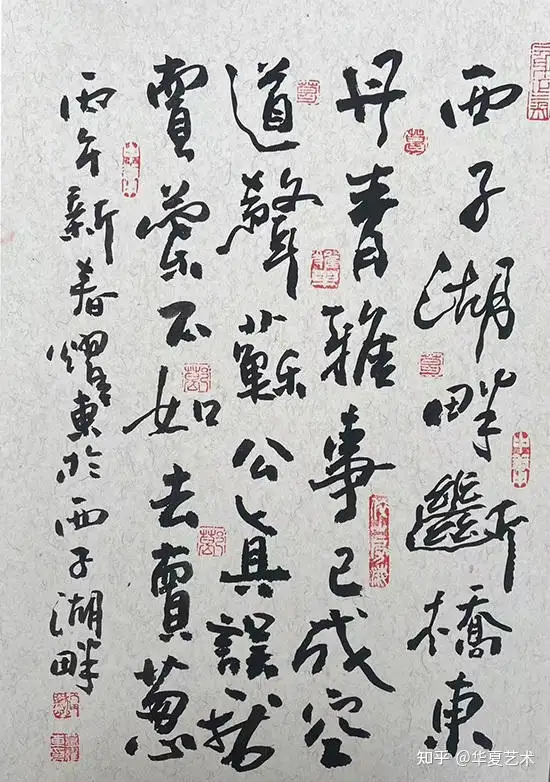 西子湖畔斷橋東
丹青雅事已成空
道聲蘇公真誤我
賣不如去賣蔥
丙午新春燿東於西子湖畔
知乎 @华夏艺术